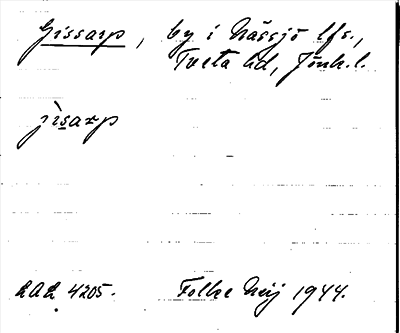 Gissarp, by i Nässjö lfs.,
Tveta hd, Jönk. l.
jìsarp
LAL 4205. Folke Neij 1944.